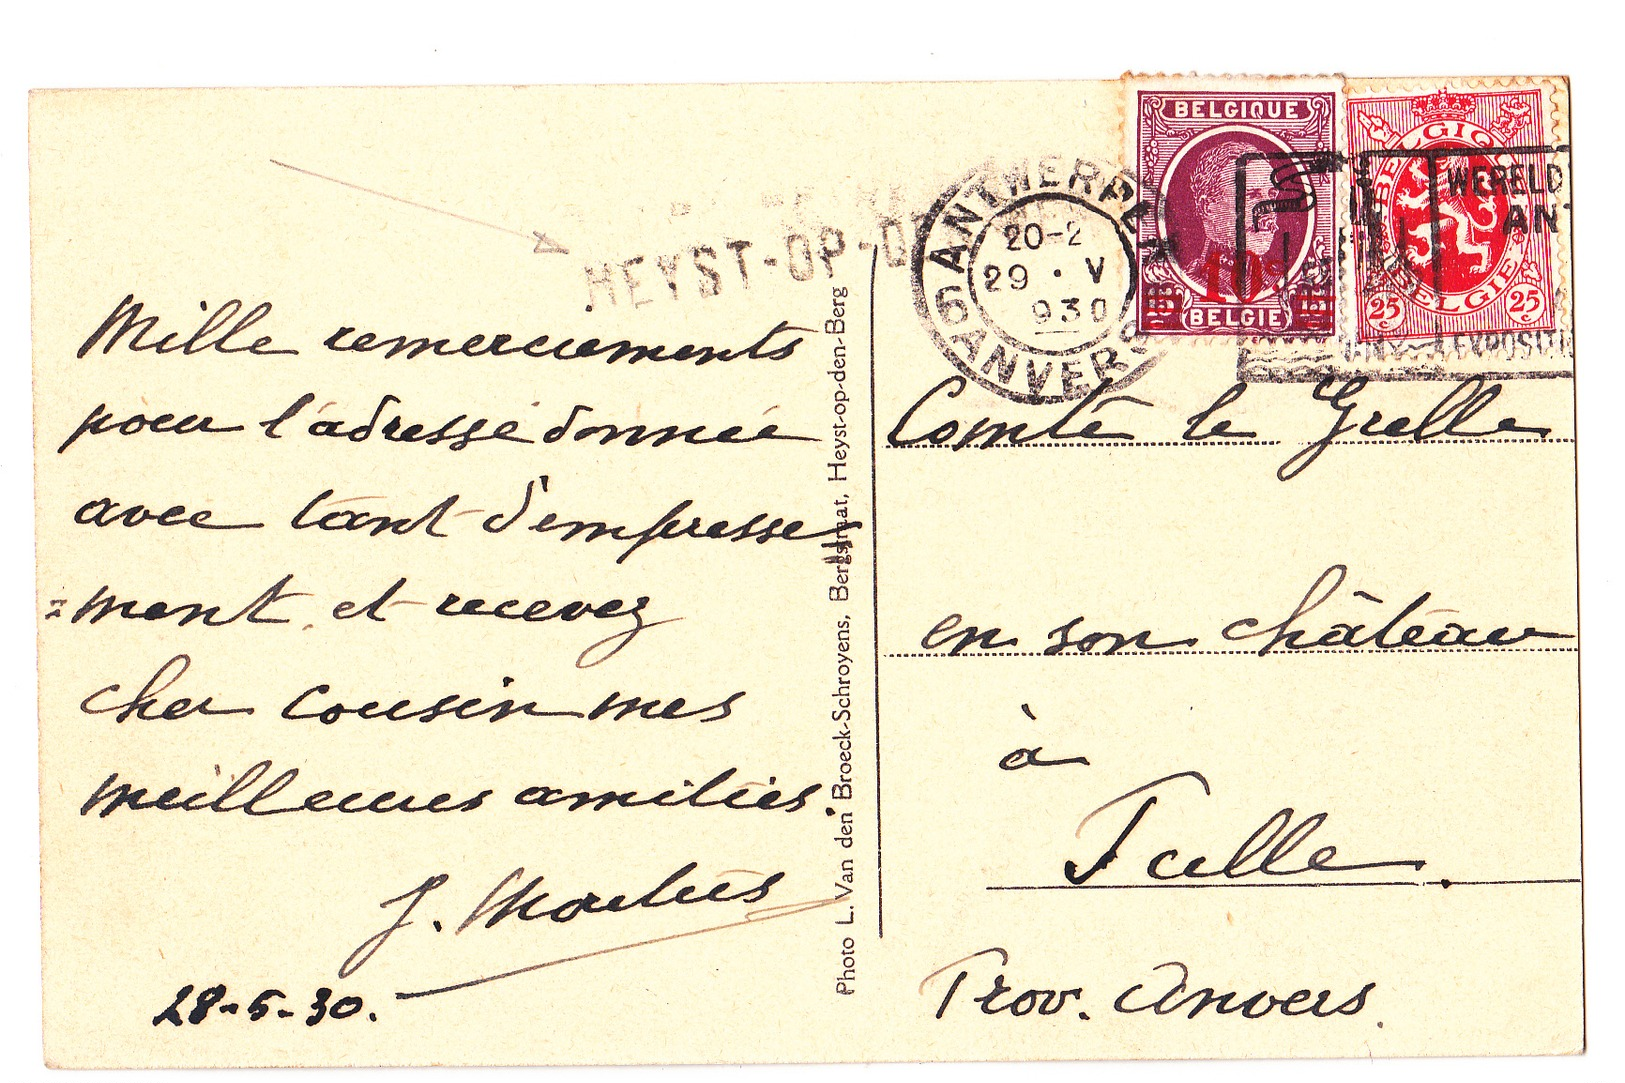 Mille remerciements
pour l'adresse donnée
avec tant d'empresse
=ment et recevez
cher cousin mes
meilleures amitiés.
J.
28-5-30.
Photo L. Van den Broeck-Schroyens, Bergstraat, Heyst-op-den-Berg
HEYST-OP-D
ANTWERPEN
20-2
29 · V
930
6 ANVERS 6
BELGIQUE
10c
BELGIE
BELGIQUE
25c 25c
BELGIE
WERELD
AN
EXPOSITI
Comte le Grelle
en son château
à
Prov. Anvers.